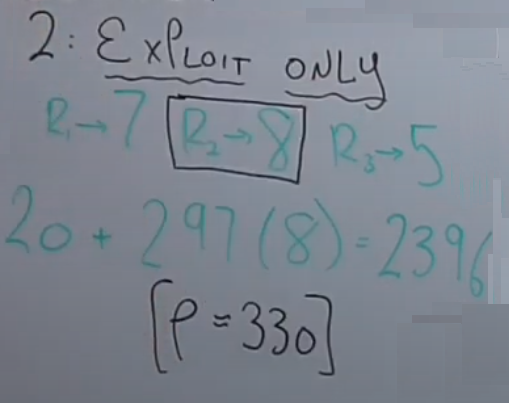 2: EXPLOIT ONLY
R₁→7 R₂→8 R₃→5
20 + 297(8) = 2396
[ρ = 330]